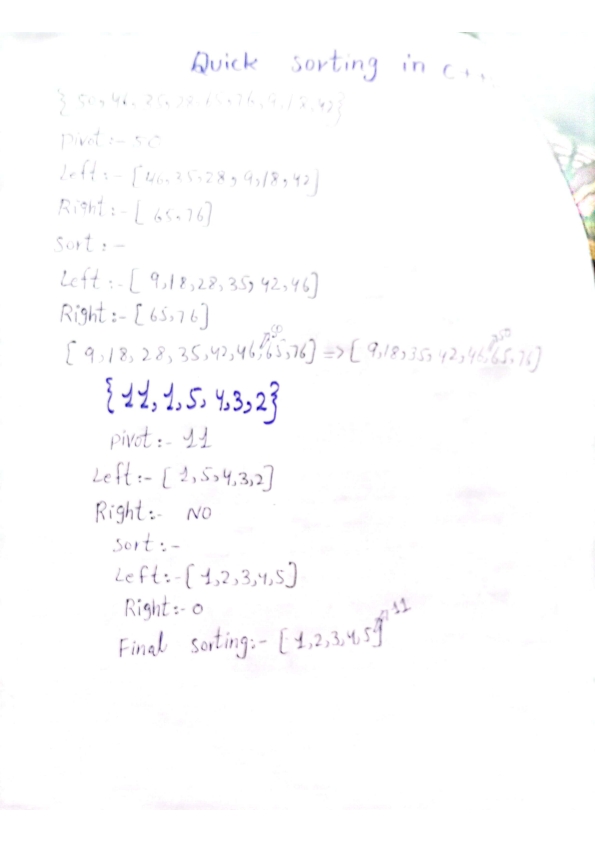 Quick sorting in C++
{ 50, 46, 35, 28, 65, 76, 9, 18, 42}
Pivot :- 50
Left :- [46, 35, 28, 9, 18, 42]
Right :- [ 65, 76]
Sort :-
Left :- [ 9, 18, 28, 35, 42, 46]
Right :- [65, 76]
[ 9, 18, 28, 35, 42, 46, 65, 76] => [ 9, 18, 35, 42, 46, 50 65, 76]
{11, 1, 5, 4, 3, 2}
pivot :- 11
Left :- [ 1, 5, 4, 3, 2]
Right :- NO
Sort :-
Left :- [ 1, 2, 3, 4, 5]
Right :- 0
Final sorting :- [ 1, 2, 3, 4, 5] 11